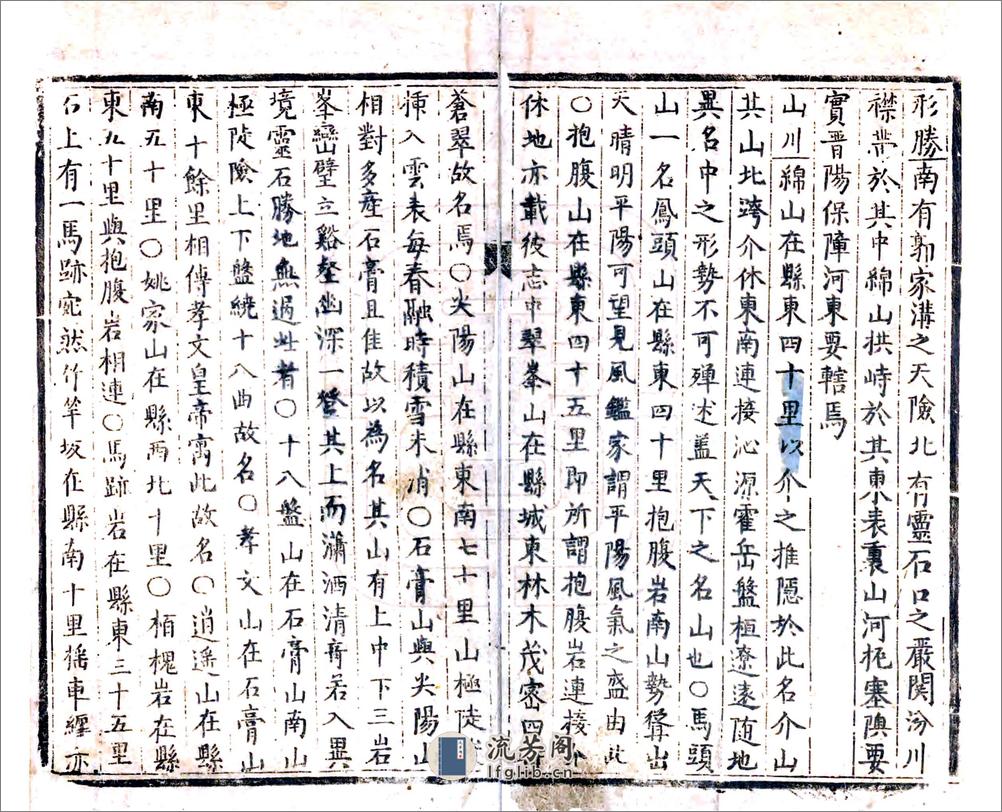 形勝南有郭家溝之天險北有靈石口之嚴関汾川
襟帶於其中綿山拱峙於其東表裏山河扼塞隩要
實晋陽保障河東要轄焉
山川綿山在縣東四十里以介之推隱於此名介山
其山北跨介休東南連接沁源霍岳盤桓遼遠随地
異名中之形勢不可殫述盖天下之名山也〇馬頭
山一名鳳頭山在縣東四十里抱腹岩南山勢聳出
天晴明平陽可望見風鑑家謂平陽風氣之盛由此
〇抱腹山在縣東四十五里即所謂抱腹岩連接介
休地亦載彼志中翠峯山在縣城東林木茂密四
蒼翠故名焉〇尖陽山在縣東南七十里山極陡
挿入雲表每春融時積雪未消〇石膏山與尖陽山
相對多産石膏且佳故以為名其山有上中下三岩
峯巒壁立谿壑幽深一登其上而瀟洒清奇若入異
境靈石勝地無過此者〇十八盤山在石膏山南山
極陡險上下盤繞十八曲故名〇孝文山在石膏山
東十餘里相傳孝文皇帝寓此故名〇逍遥山在縣
南五十里〇姚家山在縣西北十里〇栢槐岩在縣
東九十里與抱腹岩相連〇馬跡岩在縣東三十五里
石上有一馬跡宛然竹竿坂在縣南十里徭車纏亦
流芳阁
lfglib.cn